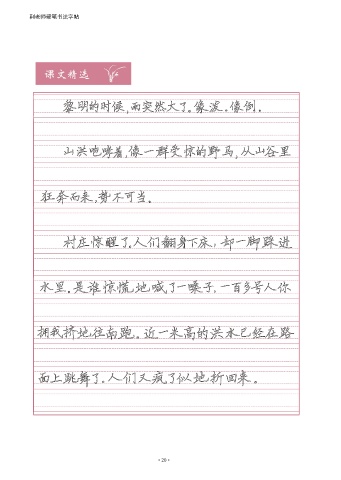 田老师硬笔书法字帖
课文精选
黎明的时候,雨突然大了。像泼。像倒。
山洪咆哮着,像一群受惊的野马,从山谷里
狂奔而来,势不可当。
村庄惊醒了。人们翻身下床,却一脚踩进
水里。是谁惊慌地喊了一嗓子,一百多号人你
拥我挤地往南跑。近一米高的洪水已经在路
面上跳舞了。人们又疯了似地折回来。
·26·